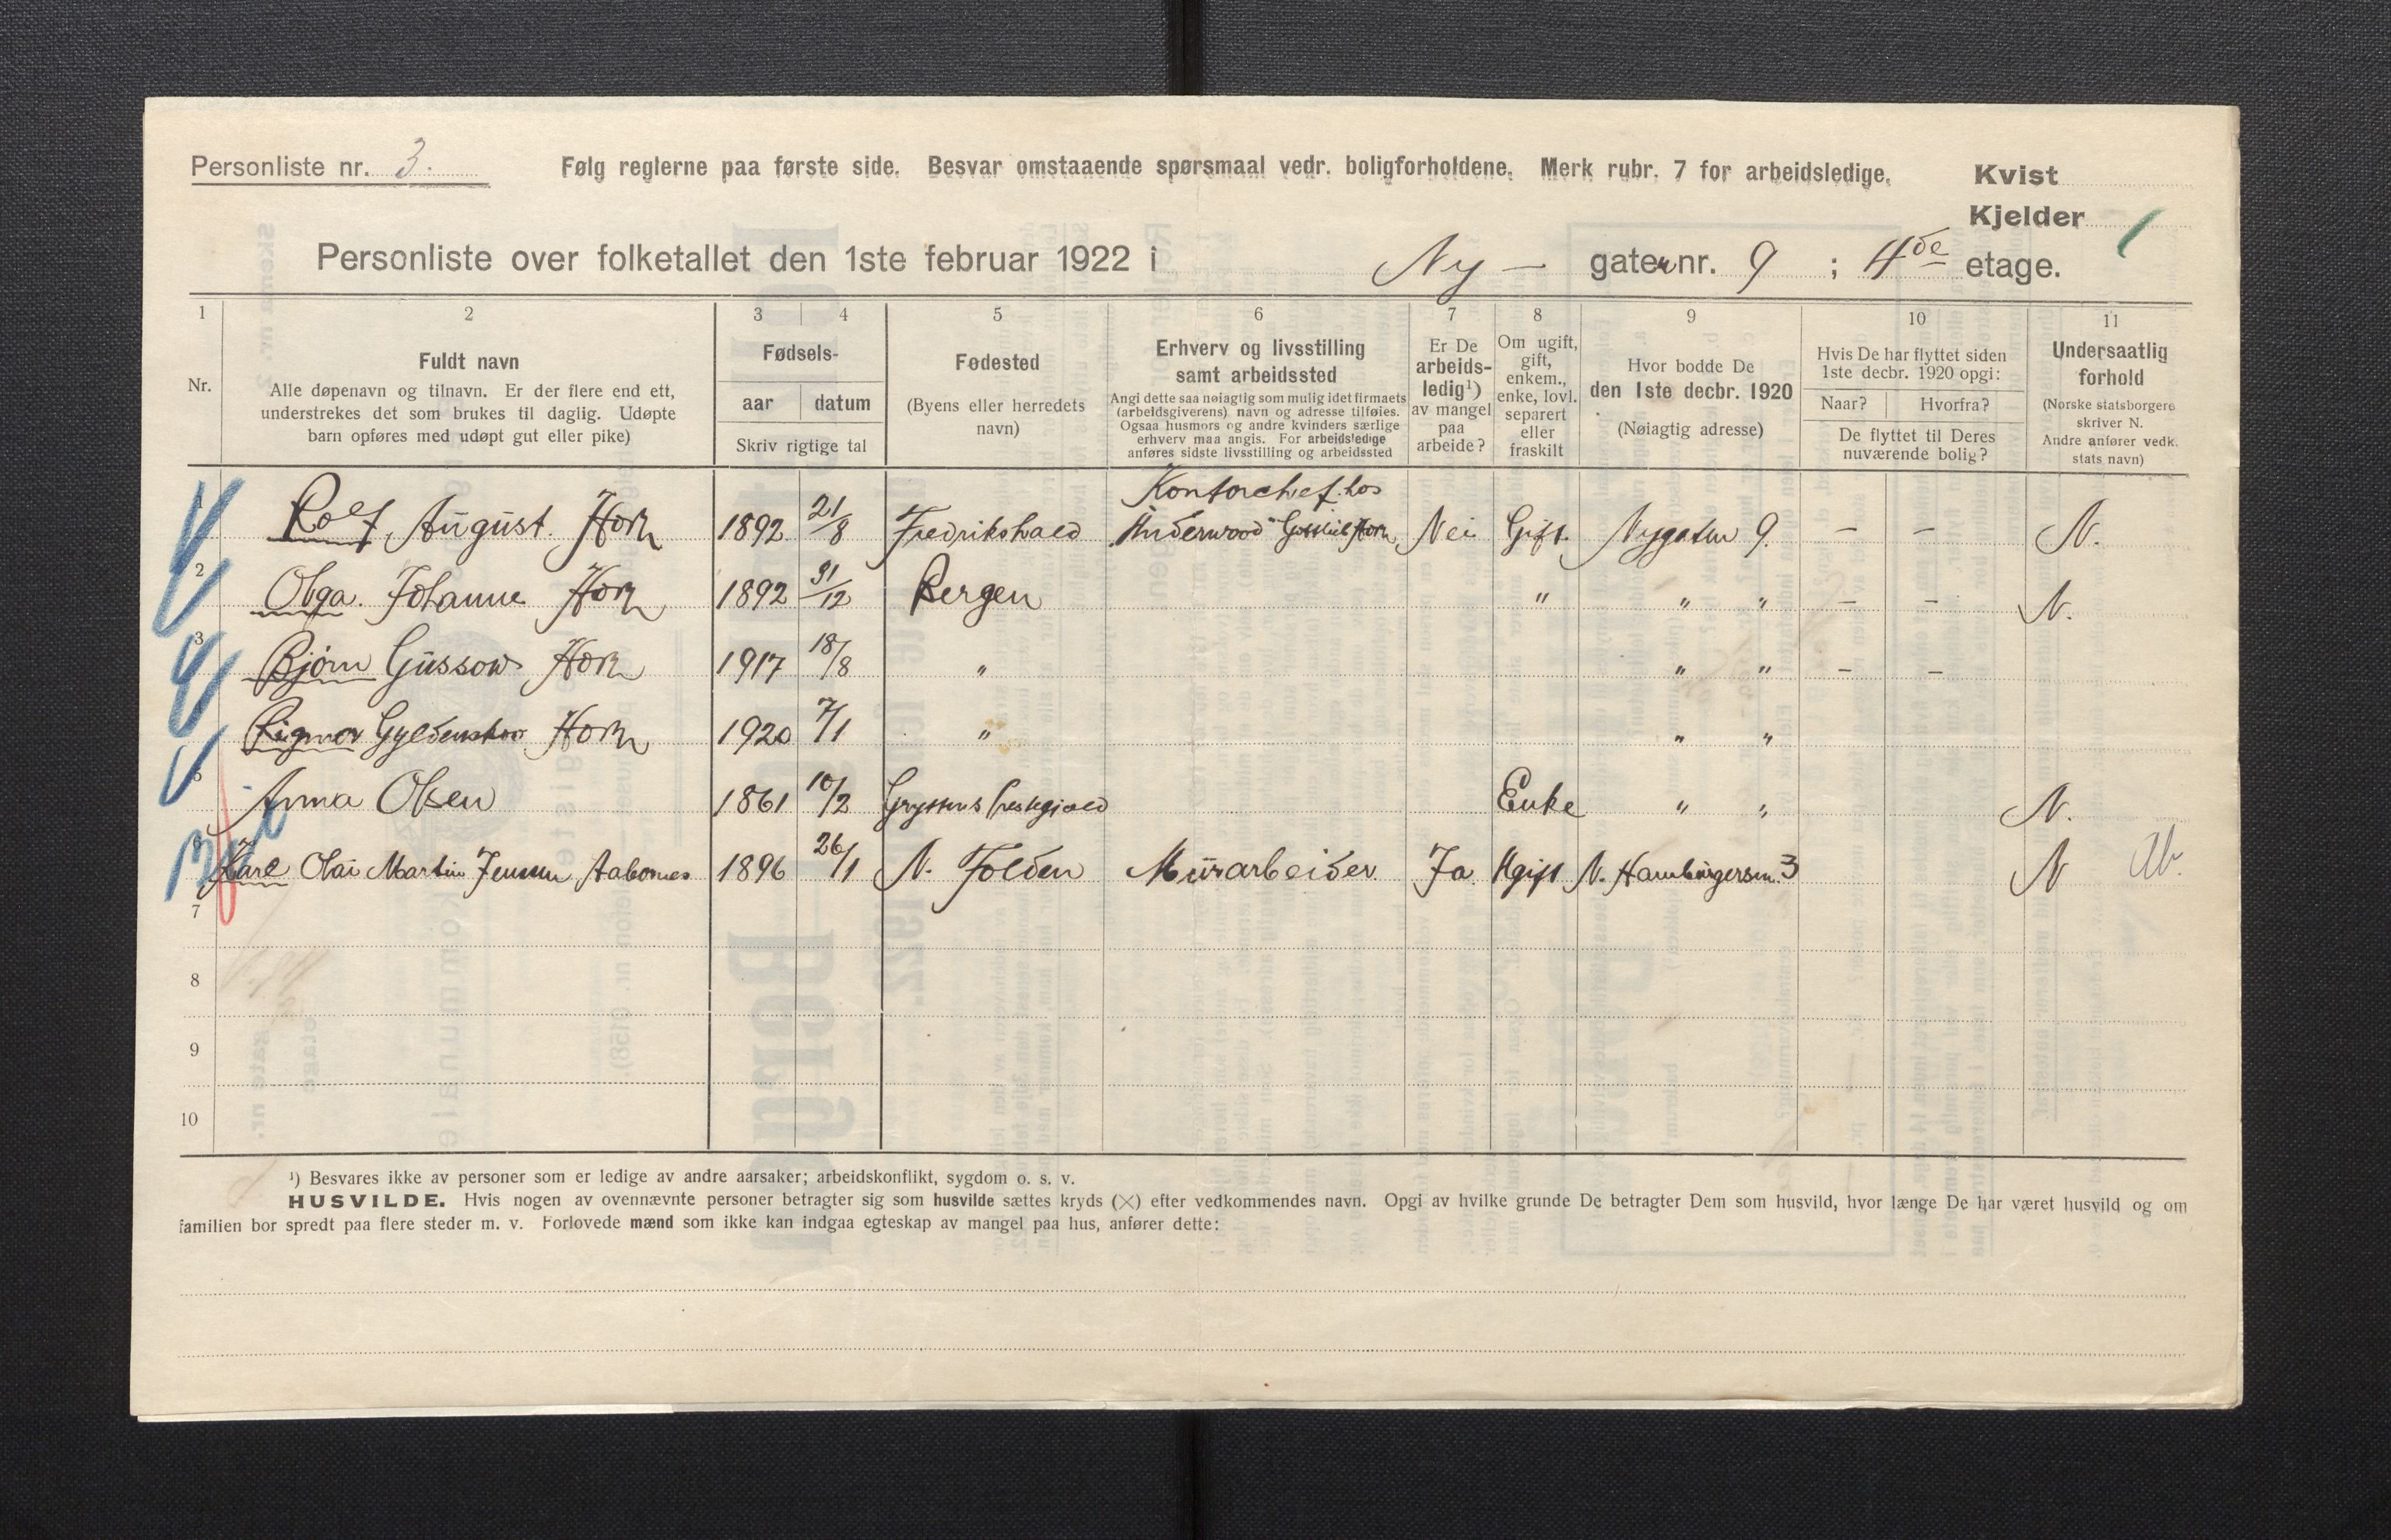 Personliste nr. 3. Følg reglerne paa første side. Besvar omstaaende spørsmaal vedr. boligforholdene. Merk rubr. 7 for arbeidsledige. Kvist
Kjelder
Personliste over folketallet den 1ste februar 1922 i Ny — gaten nr. 9 ; 4de etage.
1 2 3 4 5 6 7 8 9 10 11
Nr.
Fuldt navn
Alle døpenavn og tilnavn. Er der flere end ett,
understrekes det som brukes til daglig. Udøpte
barn opføres med udøpt gut eller pike)
Fødsels-
aar datum
Skriv rigtige tal
Fødested
(Byens eller herredets
navn)
Erhverv og livsstilling
samt arbeidssted
Angi dette saa nøiagtig som mulig idet firmaets
(arbeidsgiverens) navn og adresse tilføies.
Ogsaa husmors og andre kvinders særlige
erhverv maa angis. For arbeidsledige
anføres sidste livsstilling og arbeidssted
Er De
arbeids-
ledig¹)
av mangel
paa
arbeide?
Om ugift,
gift,
enkem.,
enke, lovl.
separert
eller
fraskilt
Hvor bodde De
den 1ste decbr. 1920
(Nøiagtig adresse)
Hvis De har flyttet siden
1ste decbr. 1920 opgi:
Naar? Hvorfra?
De flyttet til Deres
nuværende bolig?
Undersaatlig
forhold
(Norske statsborgere
skriver N.
Andre anfører vedk.
stats navn)
Kontorchef hos
Rolf August. Horn 1892 21/8 Fredrikshald Underwood Horn Nei Gift. Nygaten 9. — — N.
2 Olga. Johanne Horn 1892 31/12 Bergen " " " — — N.
3 Bjørn Gussow Horn 1917 18/8 " " " — —
Rigmor Horn 1920 7/1 " " "
Anna Olsen 1861 10/2 Enke " " N.
Karl Olai Martin Jensen Aabornes 1896 26/1 N. Folden Murarbeider Ja Ugift N. Hamburgersm. 3 N Ab.
7
8
9
10
¹) Besvares ikke av personer som er ledige av andre aarsaker; arbeidskonflikt, sygdom o. s. v.
HUSVILDE. Hvis nogen av ovennævnte personer betragter sig som husvilde sættes kryds (×) efter vedkommendes navn. Opgi av hvilke grunde De betragter Dem som husvild, hvor længe De har været husvild og om
familien bor spredt paa flere steder m. v. Forlovede mænd som ikke kan indgaa egteskap av mangel paa hus, anfører dette: